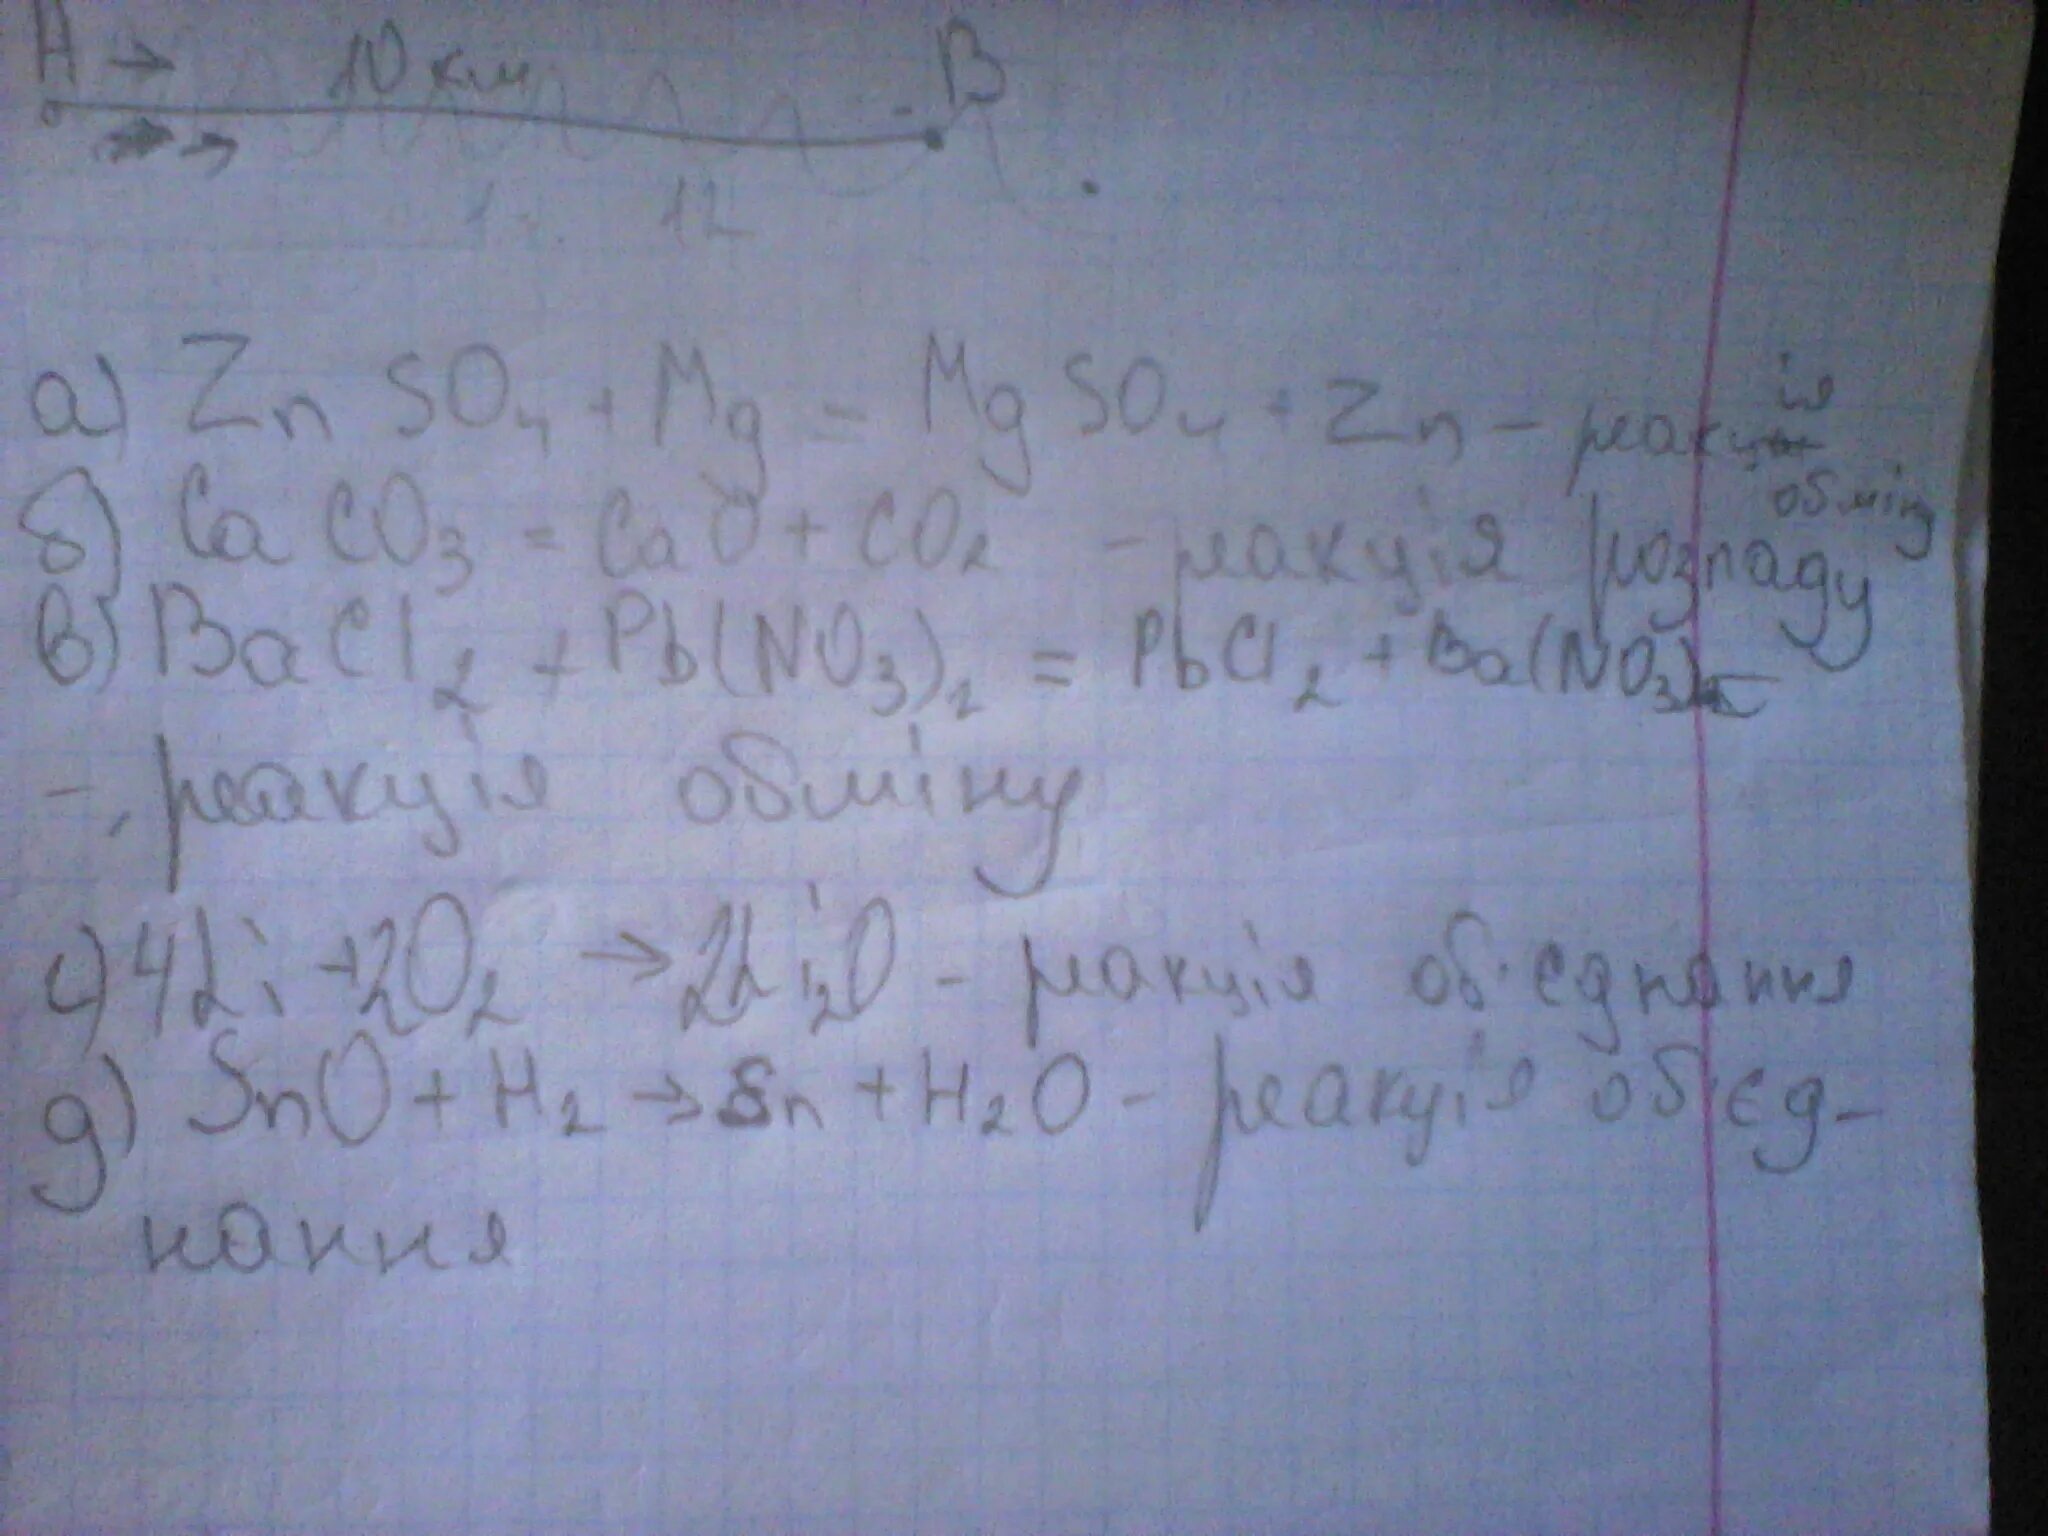 А → 10 км В
12
а) ZnSO4 + Mg = MgSO4 + Zn - реакція обміну
б) CaCO3 = CaO + CO2 - реакція розпаду
в) BaCl2 + Pb(NO3)2 = PbCl2 + Ba(NO3)2
- реакція обміну
4Li + 2O2 → 2Li2O - реакція об'єднання
д) SnO + H2 → Sn + H2O - реакція об'єд-
нання